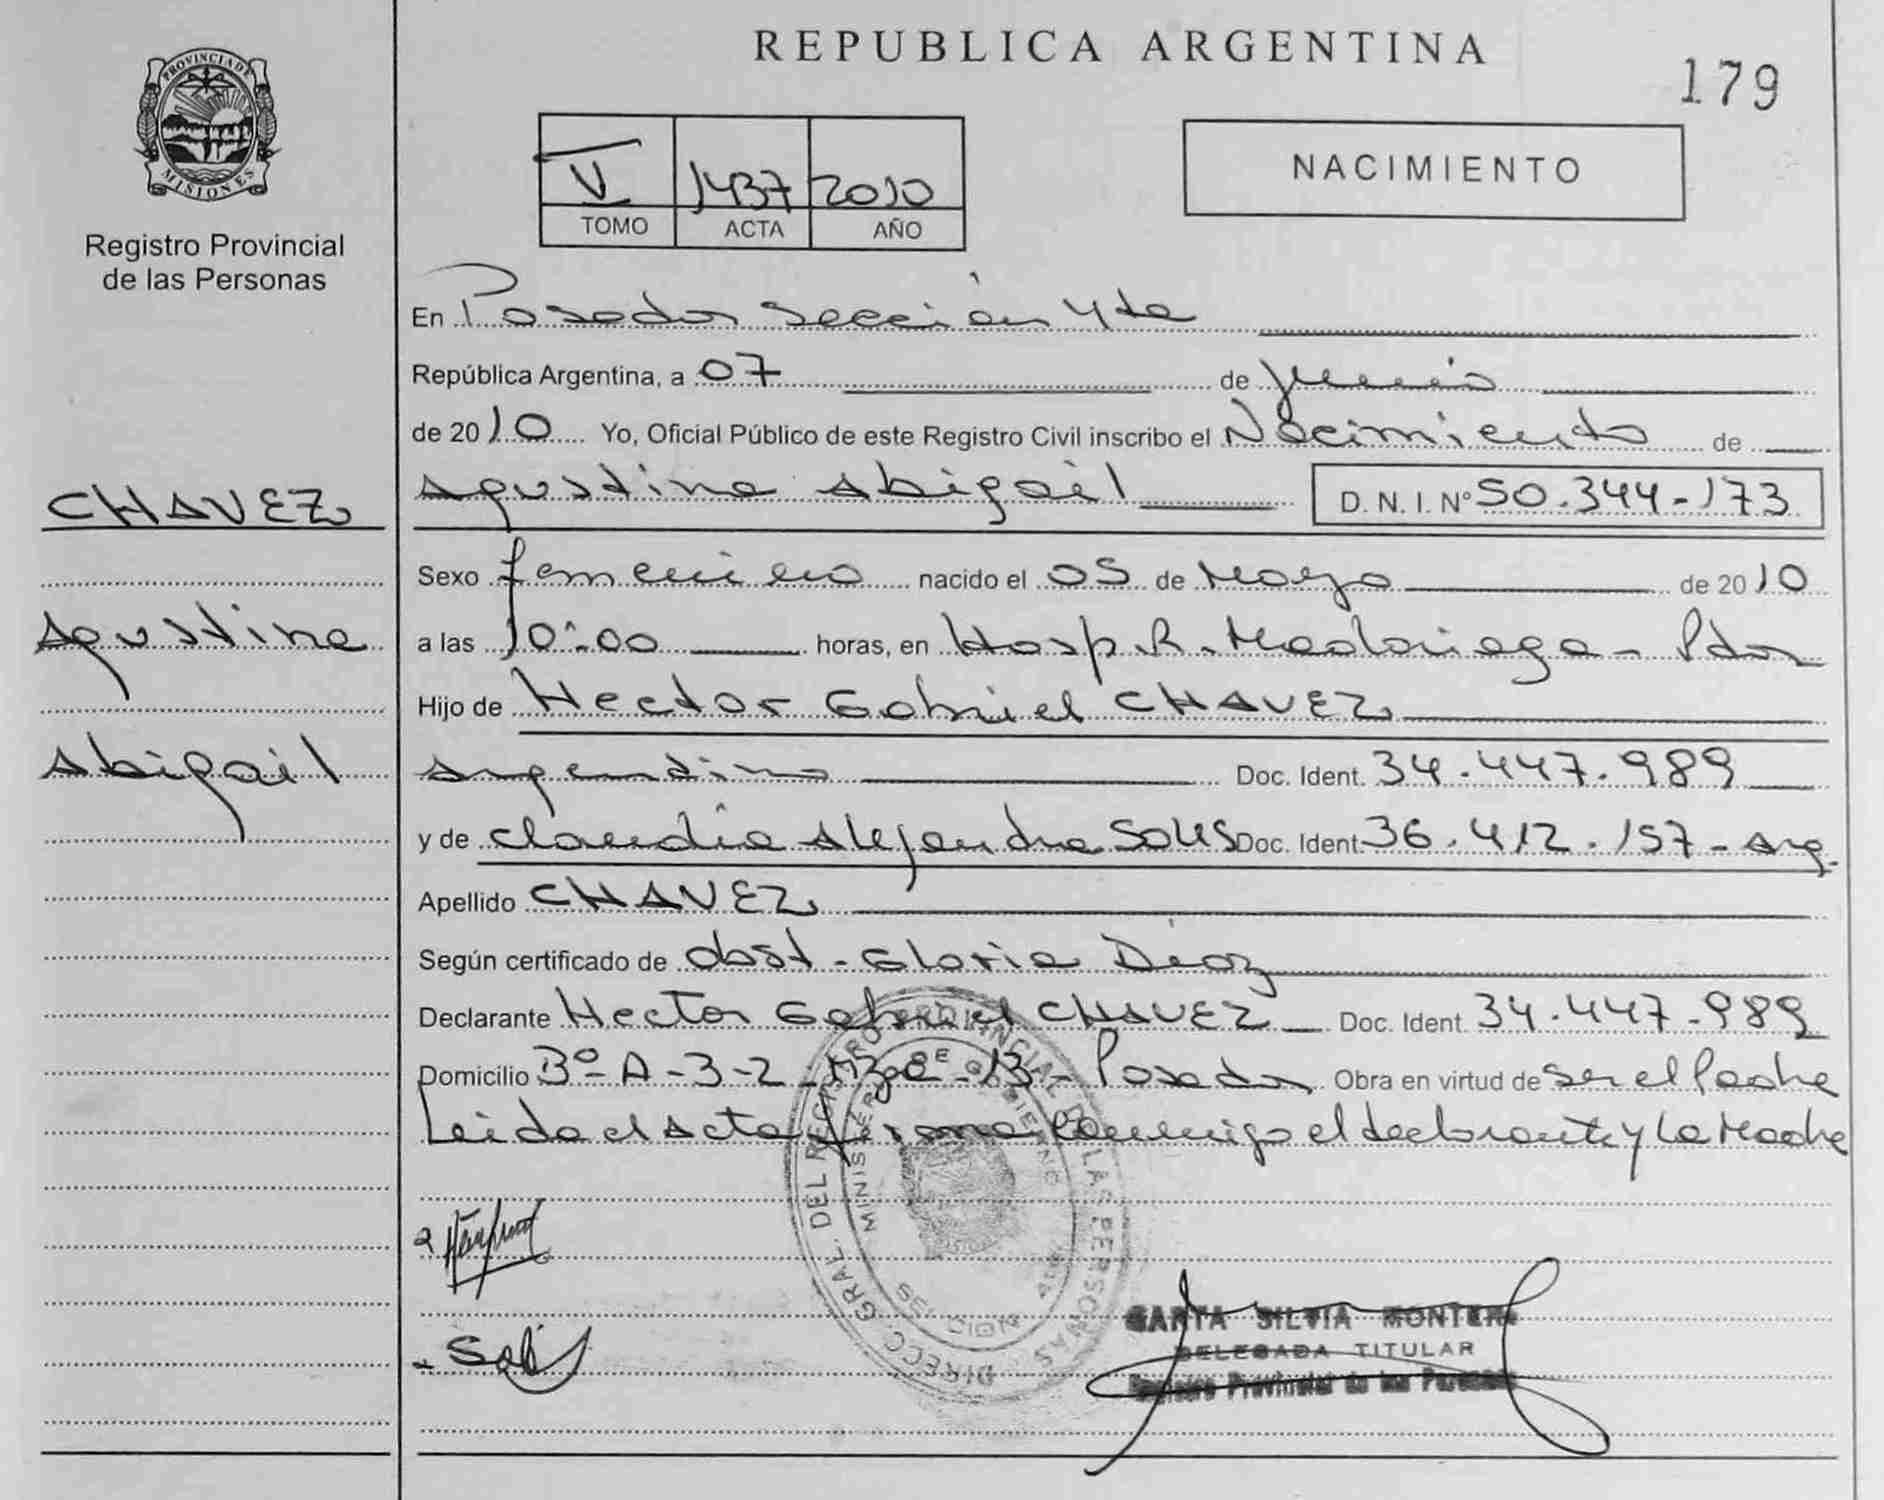 PROVINCIA DE
MISIONES
Registro Provincial
de las Personas
CHAVEZ
Agustina
Abigail
REPUBLICA ARGENTINA
179
V 1437 2010
TOMO ACTA AÑO
NACIMIENTO
En Posadas Sección 4ta
República Argentina, a 07 de Junio
de 2010 Yo, Oficial Público de este Registro Civil inscribo el Nacimiento de
Agustina Abigail D. N. I. Nº 50.344-173
Sexo femenino nacido el 05 de Mayo de 2010
a las 10:00 horas, en Hosp. R. Madariaga - Pdas
Hijo de Hector Gabriel CHAVEZ
Argentino Doc. Ident. 34.447.989
y de Claudia Alejandra SOLIS Doc. Ident. 36.412.157 - Arg.
Apellido CHAVEZ
Según certificado de Obst - Gloria Diaz
Declarante Hector Gabriel CHAVEZ Doc. Ident. 34.447.989
Domicilio Bº A-3-2 - Mzª - 13 - Posadas Obra en virtud de ser el Padre
Leida el Acta firma conmigo el declarante y la Madre
DIRECC. GRAL. DEL REGISTRO PROVINCIAL DE LAS PERSONAS
MINISTERIO DE GOBIERNO
Solis
SILVIA
DELEGADA TITULAR
Registro Provincial de las Personas